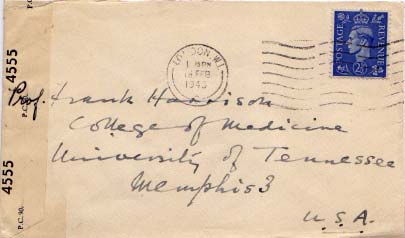 4555
P.C. 90.
4555
P.C. 90.
LONDON. W.1
FEB
1943
POSTAGE
REVENUE
2½D
Prof. Frank Harrison
College of Medicine
University of Tennessee
Memphis 3
U.S.A.